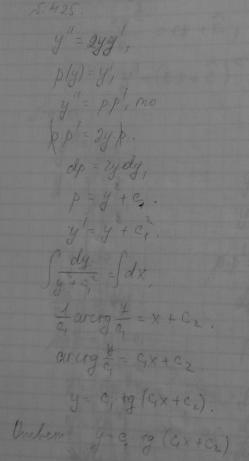 5.425.
y'' = 2yy',
p(y) = y',
y'' = pp', то
pp' = 2y p.
dp = 2ydy,
p = y² + c₁.
y' = y² + c₁².
∫ dy/(y² + c₁²) = ∫dx,
1/c₁ arctg y/c₁ = x + c₂.
arctg y/c₁ = c₁x + c₂
y = c₁ tg (c₁x + c₂).
Ответ: y = c₁ tg (c₁x + c₂)